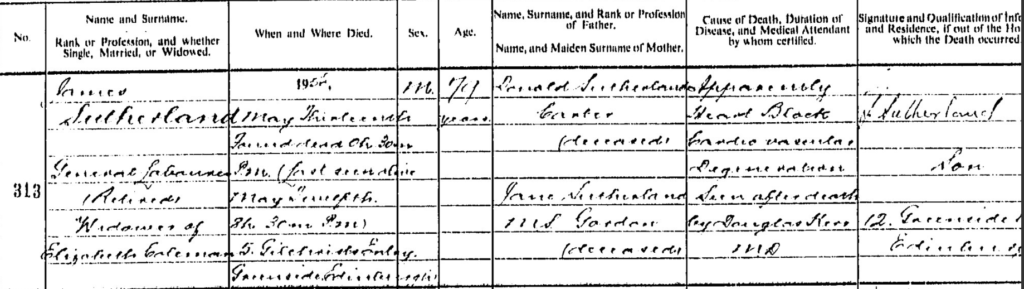 No.
Name and Surname.
Rank or Profession, and whether
Single, Married, or Widowed.
When and Where Died.
Sex.
Age.
Name, Surname, and Rank or Profession
of Father.
Name, and Maiden Surname of Mother.
Cause of Death, Duration of
Disease, and Medical Attendant
by whom certified.
Signature and Qualification of Inf
and Residence, if out of the Ho
which the Death occurred
313
James
Sutherland
General Labourer
(Retired)
Widower of
Elizabeth Coleman
May Thirteenth
Found dead 0h. 30m
P.M. (last seen alive
May Twelfth.
8h. 30m P.M.)
5 Gilchrist's Entry.
Greenside Edinburgh
M.
79
years
Donald Sutherland
Carter
(deceased)
Jane Sutherland
M.S. Gordon
(deceased)
Apparently
Heart Block
Cardio vascular
Degeneration
Seen after death
by Douglas Kerr
M.D
J Sutherland
Son
12. Greenside
Edinburg